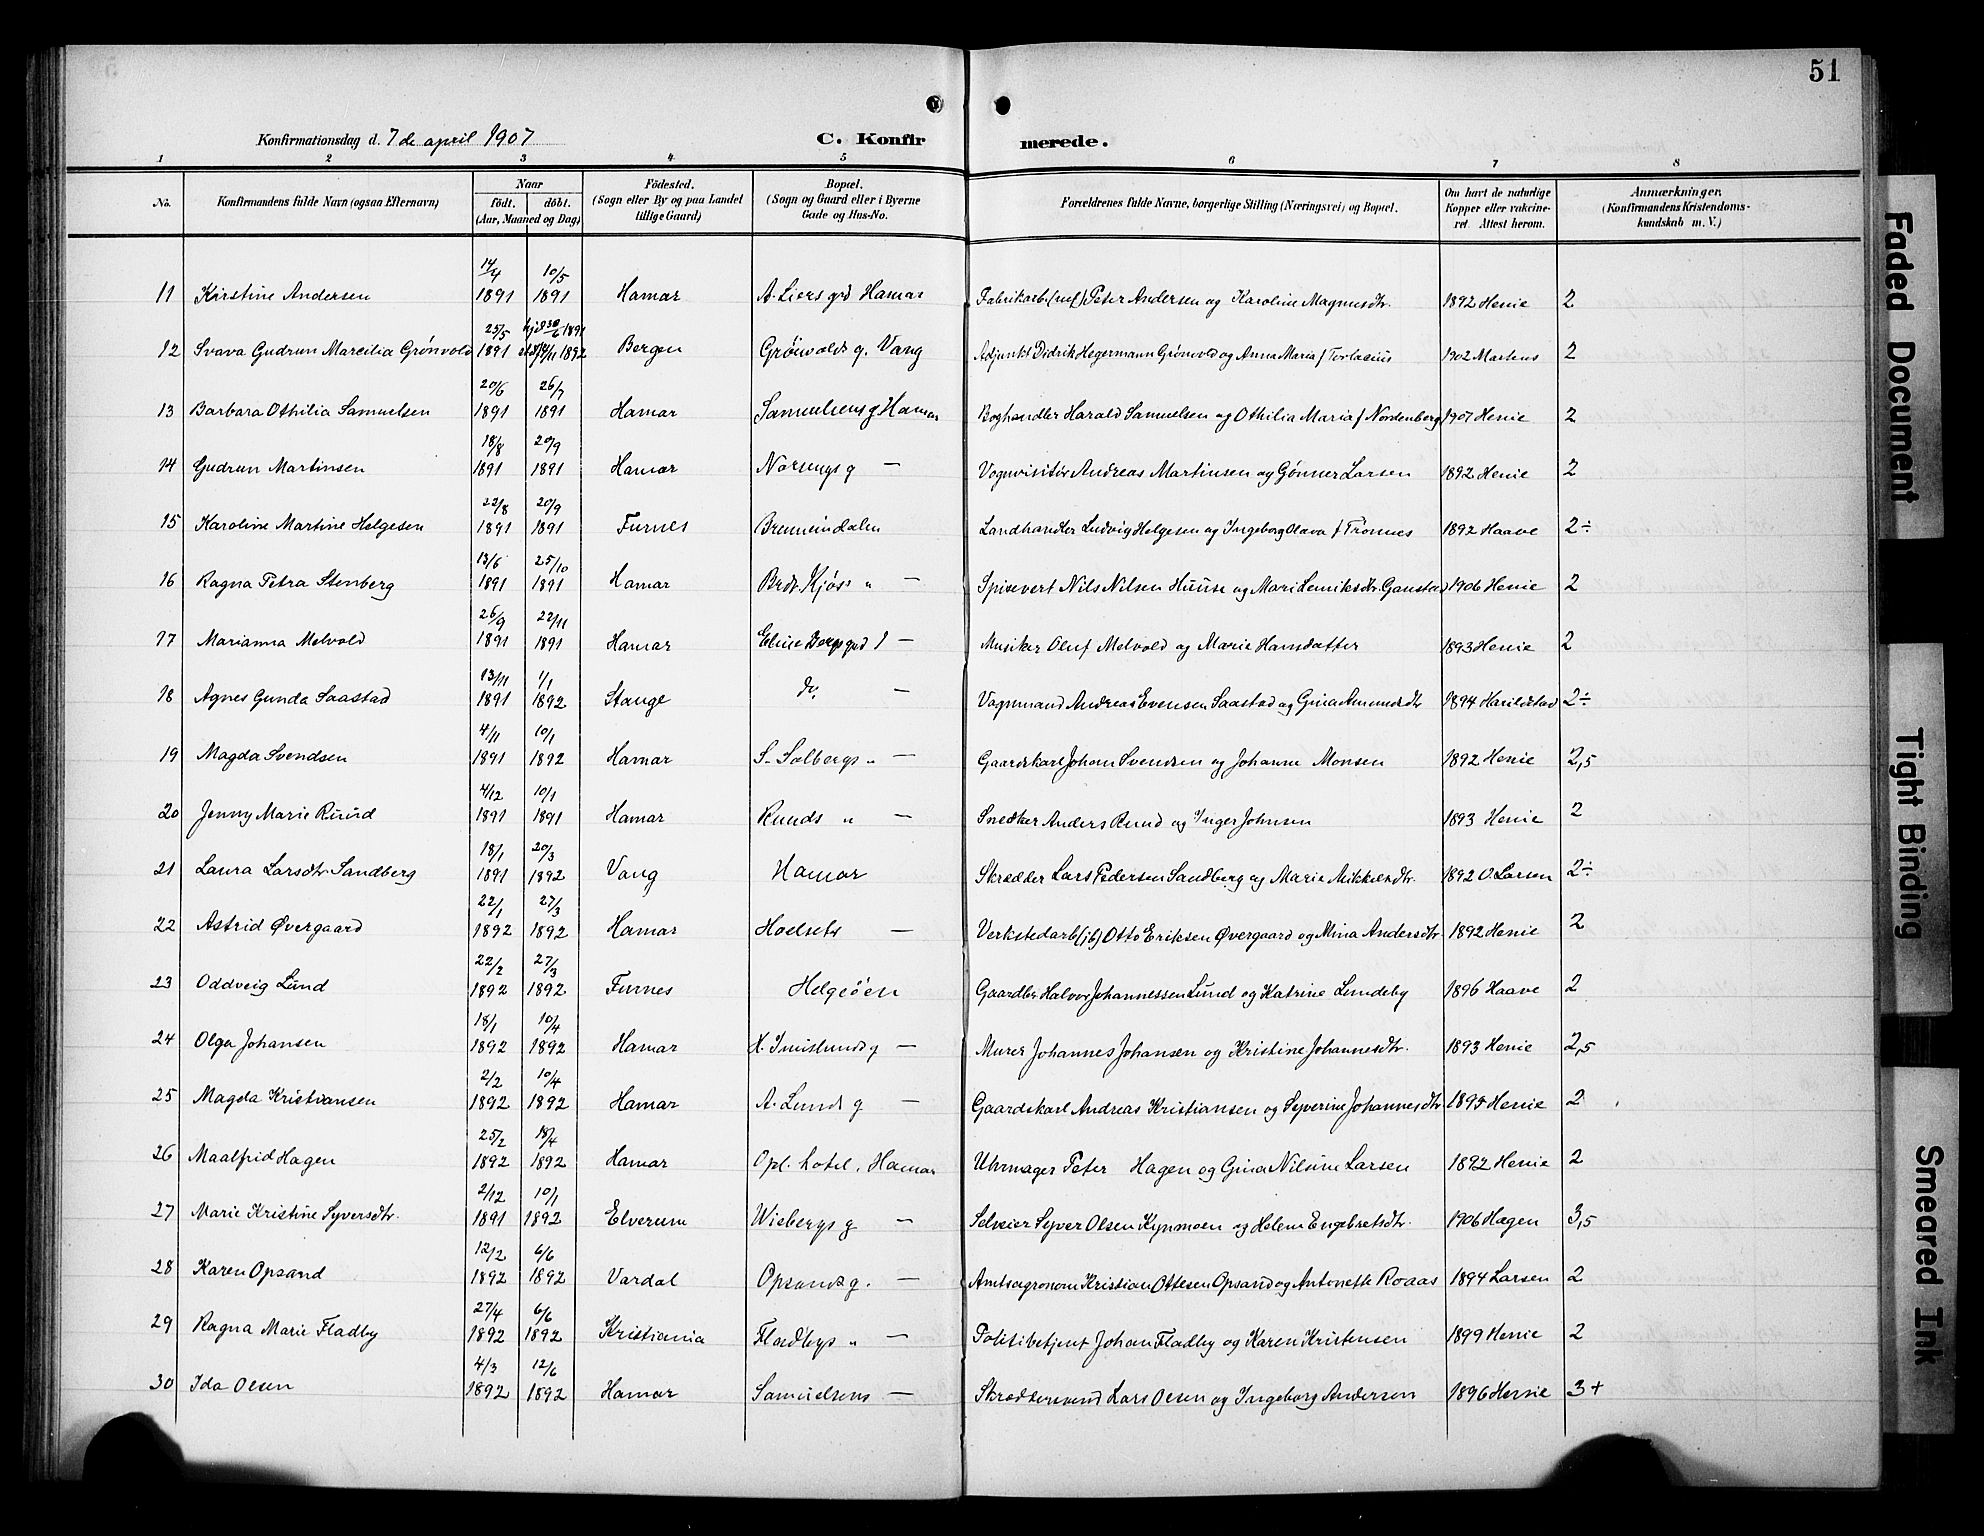 51
Konfirmationsdag d. 7de april 1907 C. Konfirmerede.
1 2 3 4 5 6 7 8
No. Konfirmandens fulde Navn (ogsaa Efternavn) Naar födt. döbt. (Aar, Maaned og Dag) Födested. (Sogn eller By og paa Landet tillige Gaard) Bopæl. (Sogn og Gaard eller i Byerne Gade og Hus-No. Forældrenes fulde Navne, borgerlige Stilling (Næringsvei) og Bopæl. Om havt de naturlige Kopper eller vakcineret. Attest herom. Anmærkninger. (Konfirmandens Kristendomskundskab m. V.)
11 Kirstine Andersen 14/4 1891 10/5 1891 Hamar A. Liers grd Hamar Fabrikarb. Peter Andersen og Karoline Magnusdtr. 1892 Henie 2
12 Svava Gudrun Marcilia Grönvold 25/5 1891 hjd 30/6 1891 1892 Bergen Grönvolds g. Vang Adjunkt Didrik Hegermann Grönvold og Anna Maria f Torlasius 1902 Martens 2
13 Barbara Othilia Samuelsen 20/6 1891 26/7 1891 Hamar Samuelsens g Hamar Boghandler Harald Samuelsen og Othilia Maria f Nordenberg 1907 Henie 2
14 Gudrun Martinsen 18/8 1891 20/9 1891 Hamar Norsengs g — Vognvisitör Andreas Martinsen og Gönner Larsen 1892 Henie 2
15 Karoline Martine Helgesen 22/8 1891 20/9 1891 Furnes Landhandler Ludvig Helgesen og Ingeborg Olava f Trönnes 1892 Haave 2÷
16 Ragna Petra Stenberg 13/6 1891 25/10 1891 Hamar Brdr. Kjös's " — Spisevert Nils Nilsen Huuse og Mari Henriksdtr. Gaustad 1906 Henie 2
17 Marianna Melvold 26/9 1891 22/11 1891 Hamar Elise — Musiker Oluf Melvold og Marie Hansdatter 1893 Henie 2
18 Agnes Gunda Saastad 13/11 1891 1/1 1892 Stange do. — Vognmand Andreas Evensen Saastad og Gina Amundsdtr 1894 Harildstad 2÷
19 Magda Svendsen 4/11 1891 10/1 1892 Hamar S. Solbergs " — Gaardskarl Johan Svendsen og Johanne Monsen 1892 Henie 2,5
20 Jenny Marie Ruud 4/12 1891 10/1 1891 Hamar Ruuds " — Snedker Anders Ruud og Inger Johnsen 1893 Henie 2
21 Laura Larsdtr. Sandberg 18/1 1891 20/3 1892 Vang Hamar Skrædder Lars Pedersen Sandberg og Marie Mikkelsdtr. 1892 O. Larsen 2÷
22 Astrid Øvergaard 22/1 1892 27/3 1892 Hamar Hoelsetr — Verkstedarb (jb) Otto Eriksen Øvergaard og Mina Andersdtr 1892 Henie 2
23 Oddveig Lund 22/2 1892 27/3 1892 Furnes Helgeöen Gaardbr Halvor Johannessen Lund og Katrine Lundeby 1896 Haave 2
24 Olga Johansen 18/1 1892 10/4 1892 Hamar K. Imislunds g — Murer Johannes Johansen og Kristine Johannesdtr. 1893 Henie 2,5
25 Magda Kristiansen 2/2 1892 10/4 1892 Hamar A. Lunds g — Gaardskarl Andreas Kristiansen og Syverine Johannesdtr 1895 Henie 2
26 Maalfrid Hagen 25/2 1892 18/4 1892 Hamar Opl. hotel, Hamar Uhrmager Peter Hagen og Gina Nilsine Larsen 1892 Henie 2
27 Marie Kristine Syversdtr. 2/12 1891 10/1 1892 Elverum Wiebergs g — Selveier Syver Olsen Kynmoen og Helene Engebretsdtr. 1906 Hagen 3,5
28 Karen Opsand 12/2 1892 6/6 1892 Vardal Opsands g. — Amtsagronom Kristian Ottesen Opsand og Antonette Roaas 1894 Larsen 2
29 Ragna Marie Fladby 27/4 1892 6/6 1892 Kristiania Fladbys " — Politibetjent Johan Fladby og Karen Kristensen 1899 Henie 2
30 Ida Olsen 4/3 1892 12/6 1892 Hamar Samuelsens — Skræddersvend Lars Olsen og Ingeborg Andersen 1896 Henie 3+
Faded Document
Tight Binding
Smeared Ink